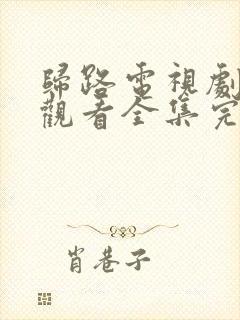 歸路電視劇
觀看全集完
肖巷子